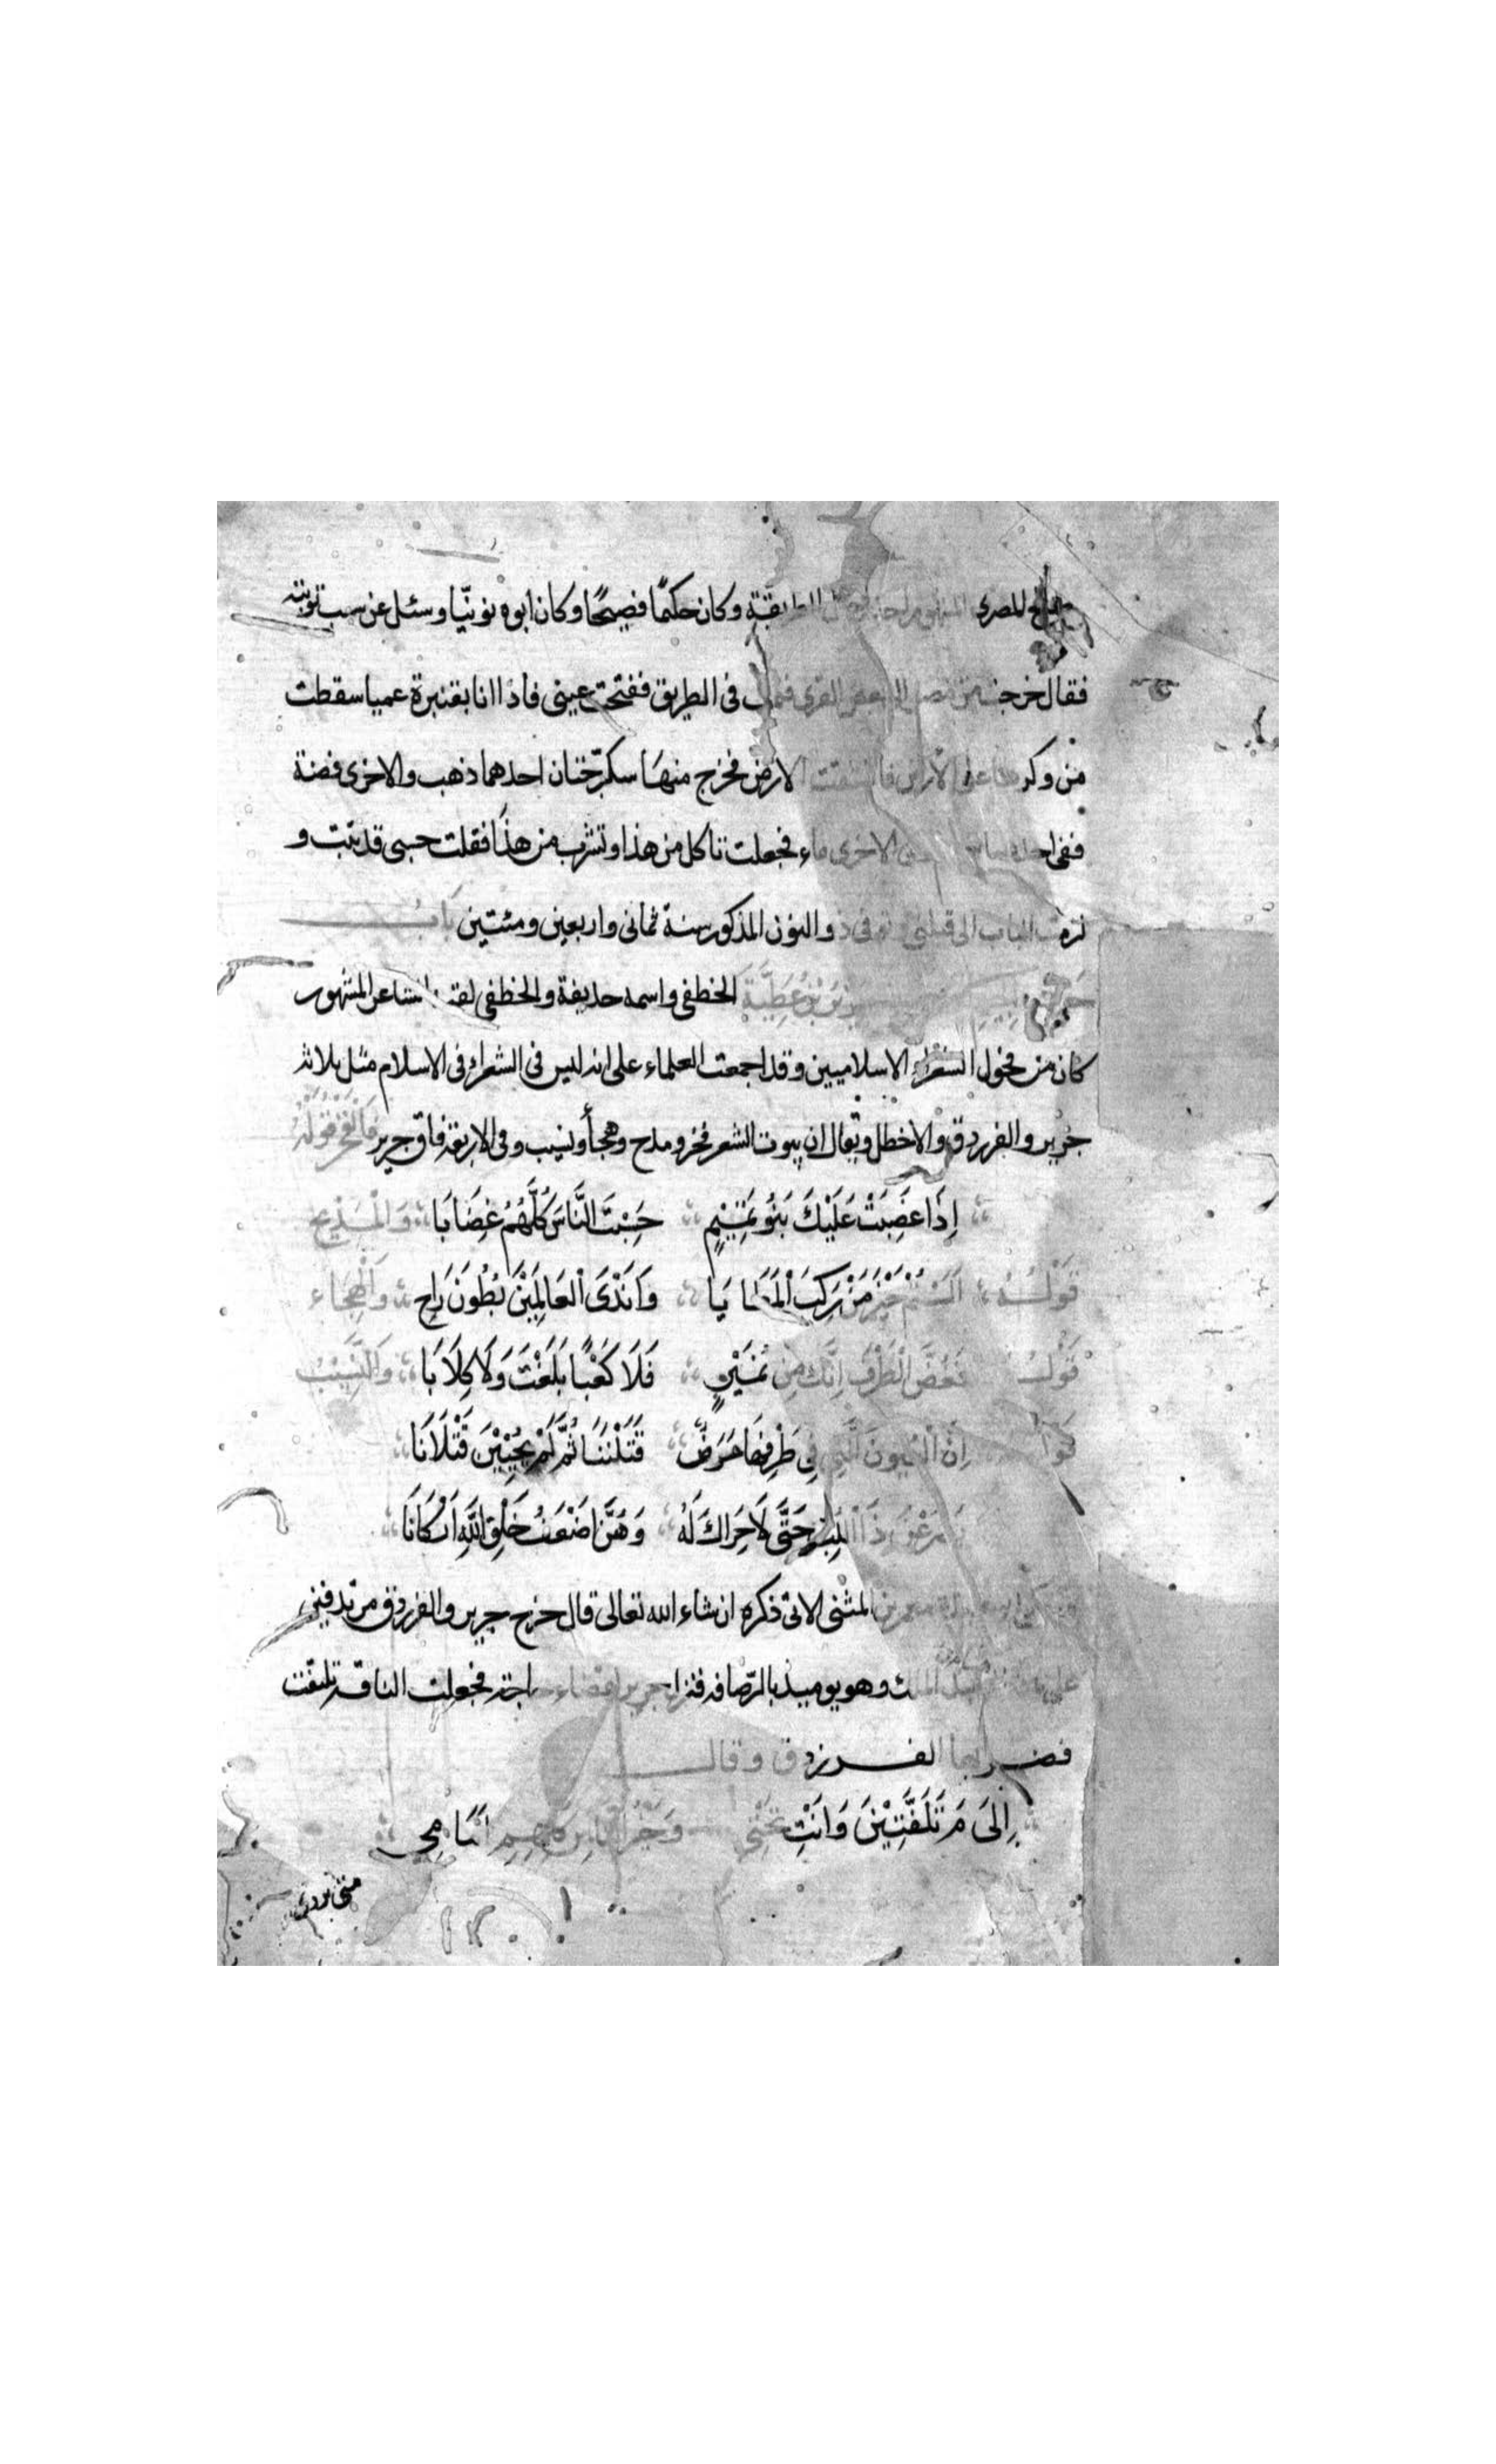 الصالح المصرى المشهور احد رجال الطريقة وكان حكيمًا فصيحًا وكان ابوه نوبيّا وسئل عن سبب توبته
فقال خرجت من مصر الى بعض القرى فنمت فى الطريق ففتحت عينى فاذا انا بقنبرة عميا سقطت
من وكرها على الارض فانشقت الارض فخرج منها سكرّجتان احدهما ذهب والاخرى فضة
ففى احدهما الاخرى ماء فجعلت تاكل من هذا وتشرب من هذا فقلت حسبى قد تبت و
لزمت الباب الى قبلنى وتوفى ذو النون المذكور سنة ثمانى واربعين ومئتين باب
جرير بن عطيّة الخطفى واسمه حذيفة والخطفى لقبه الشاعر المشهور
كان من فحول الشعراء الاسلاميين وقد اجمعت العلماء على انه ليس فى الشعراء فى الاسلام مثل ثلاثه
جرير والفرزدق والاخطل ويقال ان بيوت الشعر فخر ومدح وهجأ ونسيب وفى الاربعة فاق جرير فالفخر قوله
اِذَا غَضِبَتْ عَلَيْكَ بَنُو تَمِيْمٍ حَسِبْتَ النَّاسَ كُلَّهُمُ غِضَابَا وَالْمَدِيح
قَوْلُهُ اَلَسْتُمْ خَيْرَ مَنْ رَكِبَ الْمَطَايَا وَاَنْدَى الْعَالَمِيْنَ بُطُونَ رَاحِ وَالْهِجَاء
قَوْلُهُ فَغُضَّ الْطَّرْفَ اِنَّكَ مِنْ نُمَيْرٍ فَلَا كَعْبًا بَلَغْتَ وَلَا كِلَابَا وَالنَّسِيْبُ
قَوْلُهُ اِنَّ الْعُيُونَ الَّتِى فِى طَرْفِهَا مَرَضٌ قَتَلْنَنَا ثُمَّ لَمْ يُحْيِيْنَ قَتْلَانَا
يَصْرَعْنَ ذَا اللُّبِّ حَتَّى لَا حَرَاكَ لَهُ وَهُنَّ اَضْعَفُ خَلْقِ اللّهِ اَرْكَانَا
وحكى ابو عبيدة معمر بن المثنى الاتى ذكره ان شاء الله تعالى قال خرج جرير والفرزدق مرتدفين
على ناقة الى هشام بن عبد الملك وهو يوميذ بالرّصافه فنزل جرير لقضاء حاجته فجعلت الناقة تتلفت
فضربها الفرزدق وقال
اِلَى مَ تَلَفَّتِيْنَ وَاَنْتِ تَحْتِى وَخَيْرُ النَّاسِ كُلِّهِمِ اَمَامِى
متى تردى